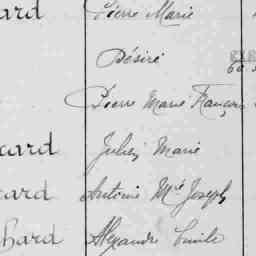 ard Pierre Marie
Désiré
Pierre Marie François
card Julien Marie
card Antoine Mie Joseph
hard Alexandre Emile